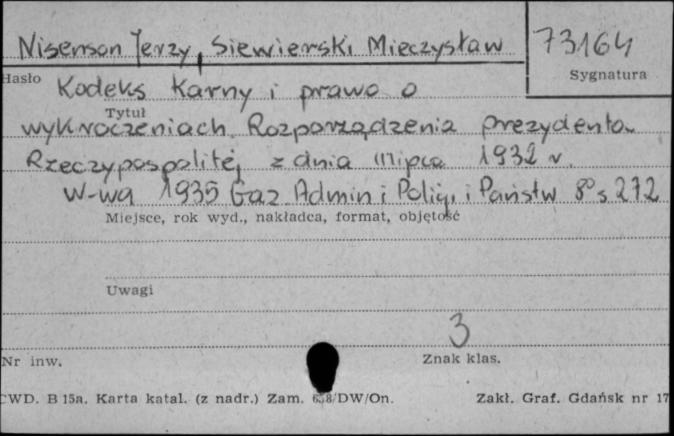 Nisenson Jerzy, Siewierski Mieczysław
73164
Hasło
Sygnatura
Kodeks Karny i prawo o
Tytuł
wykroczeniach. Rozporządzenia prezydenta
Rzeczypospolitej z dnia 11 lipca 1932 r.
W-wa 1935 Gaz. Admin i Policj. i Państw 8° s 272
Miejsce, rok wyd., nakładca, format, objętość
Uwagi
3
Nr inw.
Znak klas.
CWD. B 15a. Karta katal. (z nadr.) Zam. 658/DW/On.
Zakł. Graf. Gdańsk nr 17